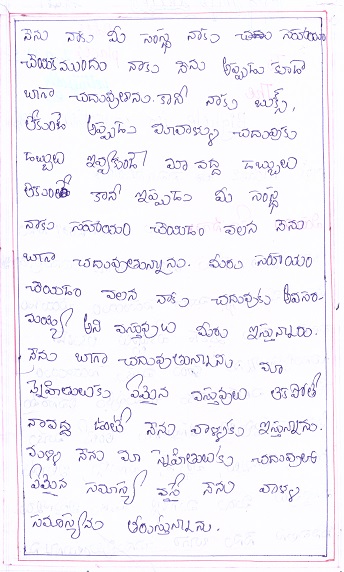 నేను నాకు మీ సంస్థ నాకు చదు సహాయం
చేయక ముందు నాకు నేను అప్పుడు కూడా
బాగా చదువుతాను. కానీ నాకు బుక్స్,
లేకుండె అప్పుడు మావాళ్ళు చదువుకు
డబ్బులు ఇవ్వకుండె మా వద్ద డబ్బులు
లేకుండె కానీ ఇప్పుడు మీ సంస్థ
నాకు సహాయం చేయడం వలన నేను
బాగా చదువుతున్నాను. మీరు సహాయం
చేయడం వలన నాకు చదువుకు అవసర-
మయ్యే అని వస్తువులు మీరు ఇస్తున్నారు.
నేను బాగా చదువుతున్నాను. మా
స్నేహితులకు ఏమైన వస్తువులు లేకపోతే
నావద్ద ఉంటే నేను వాళ్ళకు ఇస్తున్నాను.
మళ్ళి నేను మా స్నేహితులకు చదువులో
ఏమైన సమాస్య వస్తే నేను వాళ్ళ
సమాస్యను తీరుస్తున్నాను.